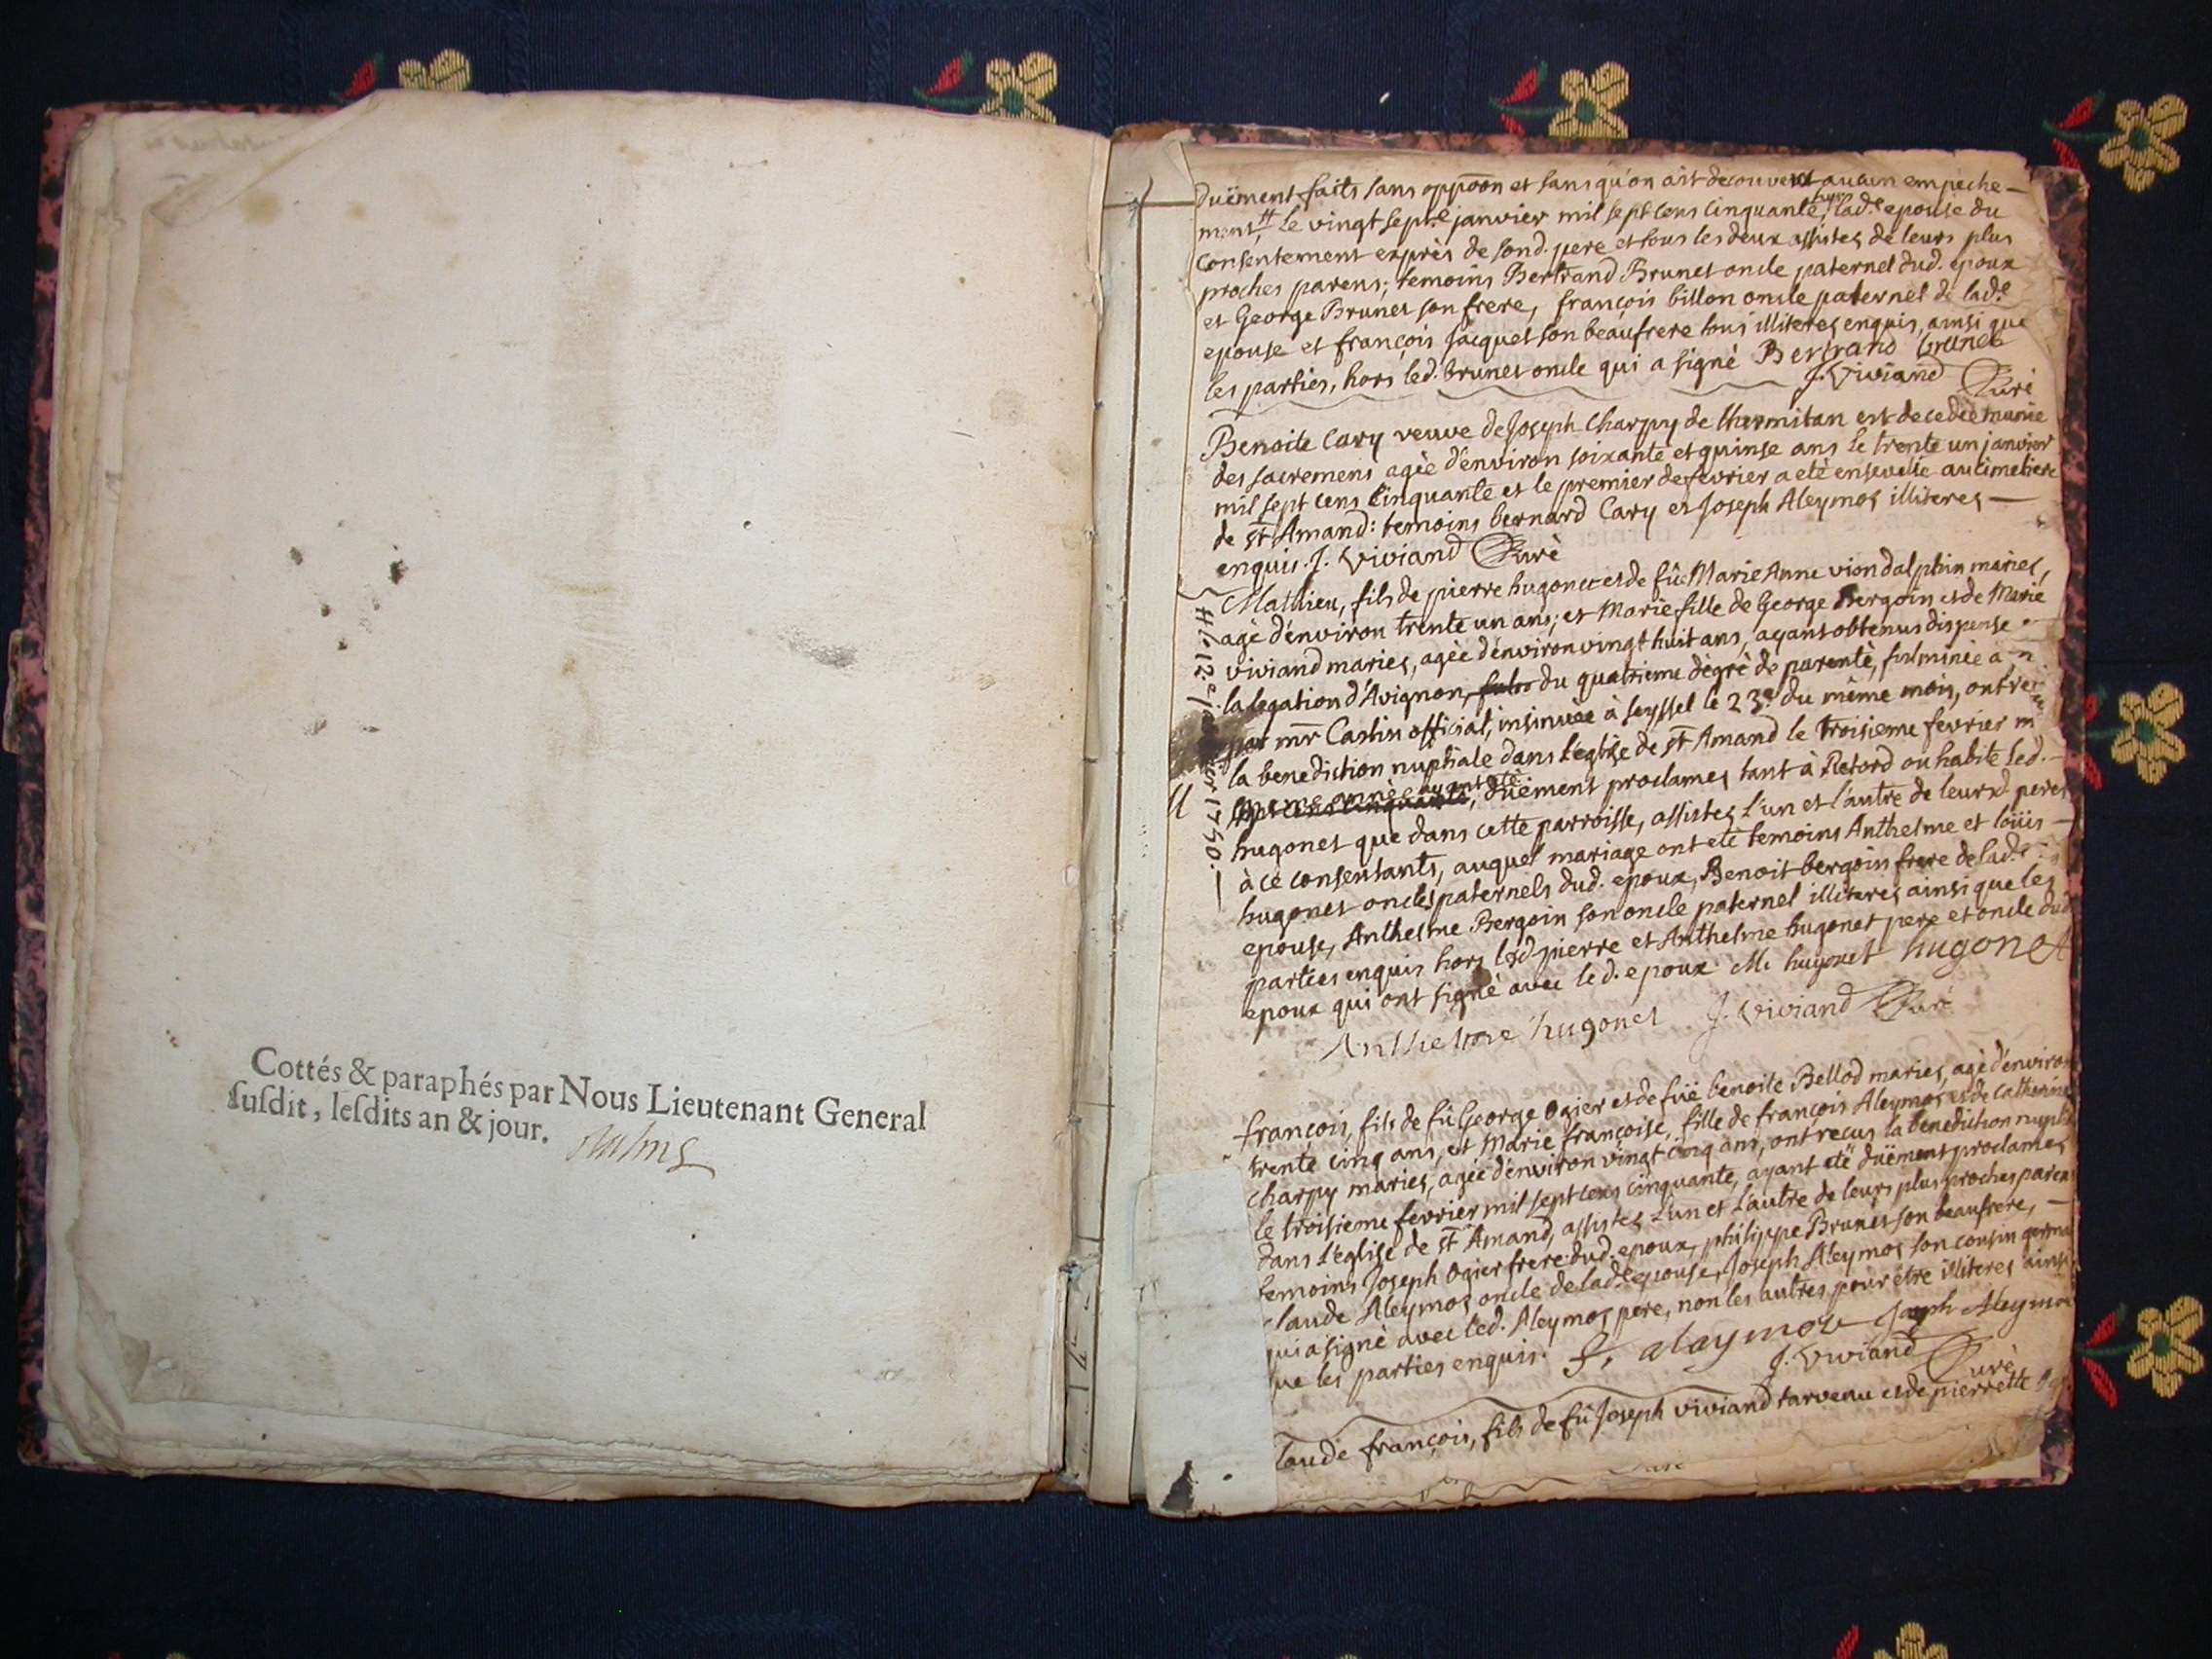 Cottés & paraphés par Nous Lieutenant General
ſuſdit, leſdits an & jour.
duëment faits sans oppoōn et sans qu'on ait decouvert aucun empeche-
ment, le vingt sept.e janvier mil sept cens cinquante, lad.e epouse du
consentement exprès de sond. pere et tous les deux assistez de leurs plus
proches parens; temoins Bertrand Brunet oncle paternel dud. epoux
et George Brunet son frere, françois billon oncle paternel de lad.e
epouse et françois Jacquet son beaufrere tous illiterez enquis, ainsi que
les parties, hors led. brunet oncle qui a signé Bertrand brunet
J. Viviand Curé
Benoite Cary veuve de Joseph Charpy de lhermitan est decedèe munie
des sacremens agèe d'environ soixante et quinse ans le trente un janvier
mil sept cens cinquante et le premier de fevrier a etè ensevelie au cimetiere
de st Amand: temoins bernard Cary et Joseph Aleymoz illiterez
enquis. J. Viviand Curè
Mathieu, fils de pierre hugonet et de fûe Marie Anne viondalphin mariez,
agè d'environ trente un ans; et Marie fille de George Bergoin et de Marie
viviand mariez, agèe d'environ vingt huit ans, ayans obtenus dispense
la legation d'Avignon, du quatrieme dègrè de parentè, fulminèe
par mr Castin official, insinuèe à seyssel le 23e du même mois, ont
la benediction nuptiale dans l'eglise de st Amand le troisieme fevrier
même annèe ayant etè duëment proclamez tant à Retord ou habite led.
hugonet que dans cette parroisse, assistez l'un et l'autre de leursd. peres
à ce consentants, auquel mariage ont etè temoins Anthelme et loüis
hugonet oncles paternels dud. epoux, Benoit bergoin frere de lad.e
epouse, Anthelme Bergoin son oncle paternel illiterez ainsi que les
parties enquis hors lesd. pierre et Anthelme hugonet pere et oncle dud.
epoux qui ont signè avec led. epoux M. hugonet hugonet
Anthelme hugonet J. Viviand Curè
# le 12.e janvier 1750.
françois, fils de fû George Ogier et de fûë benoite Bellod mariez, agè d'environ
trente cinq ans, et Marie françoise, fille de françois Aleymoz et de Catherine
charpy mariez, agèe d'environ vingt cinq ans, ont recus la benediction
le troisieme fevrier mil sept cens cinquante, ayant etè duëment proclamez
dans l'eglise de st Amand, assistez l'un et l'autre de leurs plus proches parens
temoins Joseph Ogier frere dud. epoux, philippe Brunet son beaufrere,
laude Aleymoz oncle de lad.e epouse, Joseph Aleymoz son cousin
qui a signè avec led. Aleymoz pere, non les autres pour être illiterez ainsi
que les parties enquis. f. alaymoz Joseph Aleymoz
J. Viviand Curè
laude françois, fils de fû Joseph viviand tarvenu et de pierrette